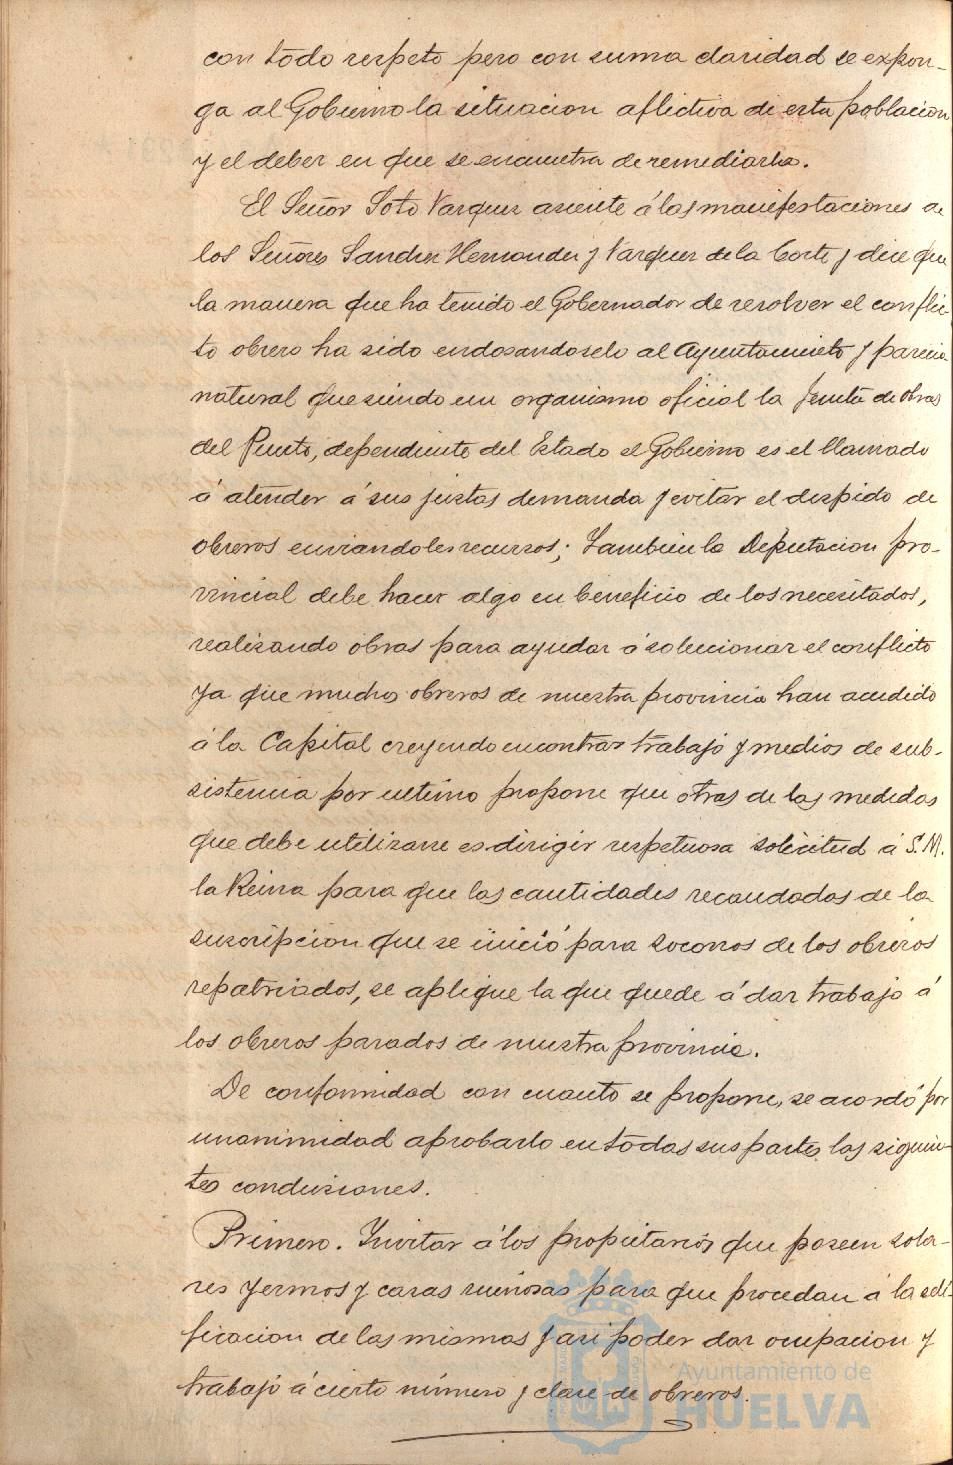 con todo respeto pero con suma claridad se expon-
ga al Gobierno la situacion aflictiva de esta poblacion
y el deber en que se encuentra de remediarla.
El Señor Soto Vazquez asiente á las manifestaciones de
los Señores Sanchez Hernandez y Vazquez de la Corte y dice que
la manera que ha tenido el Gobernador de resolver el conflic-
to obrero ha sido endosandoselo al Ayuntamiento y parecia
natural que siendo un organismo oficial la Junta de obras
del Puerto, dependiente del Estado el Gobierno es el llamado
á atender á sus justas demanda y evitar el despido de
obreros enviandoles recursos; Tambien la Deputacion pro-
vincial debe hacer algo en beneficio de los necesitados,
realizando obras para ayudar á solucionar el conflicto
ya que muchos obreros de nuestra provincia han acudido
á la Capital creyendo encontrar trabajo y medios de sub-
sistencia por ultimo propone que otras de las medidas
que debe utilizarse es dirigir respetuosa solicitud á S.M.
la Reina para que las cantidades recaudadas de la
suscripcion que se inició para socorros de los obreros
repatriados, se aplique la que quede á dar trabajo á
los obreros parados de nuestra provincia.
De conformidad con cuanto se propone, se acordó por
unanimidad aprobarlo en todas sus partes las siguien-
tes conclusiones.
Primero. Invitar á los propietarios que poseen sola-
res yermos y casas ruinosas para que procedan á la edi-
ficacion de las mismas y asi poder dar ocupacion y
trabajo á cierto número y clase de obreros.
Ayuntamiento de
HUELVA